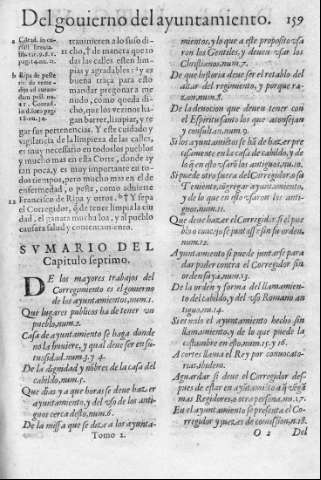 Del gouierno del ayuntamiento. 159
a
tramineren a lo suso di
cho, † de manera que to
das las calles esten lim-
pias y agradables: ᵇ y es
buena traça para esto
mandar pregonar a me
nudo, como queda di-
cho, que los vezinos ha-
gan barrer, limpiar, y re
gar sus pertenencias. Y este cuidado y
vigilancia de la limpieza de las calles,
es muy necessario en todos los pueblos
y mucho mas en esta Corte, donde ay
tan poca, y es muy importante en to-
dos tiempos, pero mucho mas en el de
enfermedad, o peste, como aduierte
12 Francisco de Ripa y otros. † Y sepa
el Corregidor, que tiene limpia la ciu
dad, el ganara mucha loa, y al pueblo
causara salud y contentamiento.
b Ripa de peste
SVMARIO DEL
Capitulo septimo.
DE los mayores trabajos del
Corregimiento es el gouierno
de los ayuntamientos, num. 1.
Que lugares publicos ha de tener un
pueblo, num. 2.
Casa de ayuntamiento se haga donde
no la huuiere, y qual deue ser en si-
tuosidad. num. 3. y 4.
De la dignidad y nõbres de la casa del
cabildo, num. 5.
Que dias y a que horas se deue hazer
ayuntamiento, y del uso de los anti-
guos cerca desto, num. 6.
De la missa que se deza a los ayunta-
Tomo 2.
mientos, y lo que a este proposito usa
ron los Gentiles, y deuen usar los
Christianos. num. 7.
De que historia deue ser el retablo del
altar del regimiento, y porque ra-
zon. num. 8.
De la deuocion que deuen tener con
el Espiritu santo los que aconsejan
y consultan. num. 9.
Si los ayuntamiẽtos se hã de hazer pre
cisamente en la casa de cabildo, y de
lo q̃ en esto usarõ los antiguos, nu. 10.
Si puede otro fuera del Corregidor o su
Teniente, congregar ayuntamiento,
y de lo que en esto usaron los anti-
guos, num. 11.
Que deue hazer el Corregidor si el pue
blo o concejo se juntasse sin su orden,
num. 12.
Ayuntamiento si puede juntarse para
dar poder contra el Corregidor sin
orden suya, num. 13.
De la orden y forma del llamamien-
to del cabildo, y del uso Romano an
tiguo, nu. 14.
Si es nulo el ayuntamiento hecho sin
llamamiento, y de lo que puede la
costumbre en esto, num. 15. y 16.
A cortes llama el Rey por conuoca-
toras. ibidem.
Aguardar si deue el Corregidor des-
pues de estar en ayuntamiẽto a q̃ vẽgã
mas Regidores, o otra persona, nu. 17.
En el ayuntamiento se presenta el Co-
rregidor y juezes de comission, n. 18.
O 2 Del